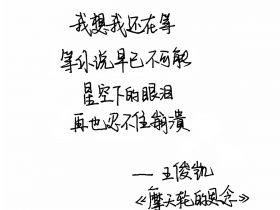 我想我还在等
等你说早已不可能
星空下的眼泪
再也忍不住崩溃
— 王俊凯
《摩天轮的思念》